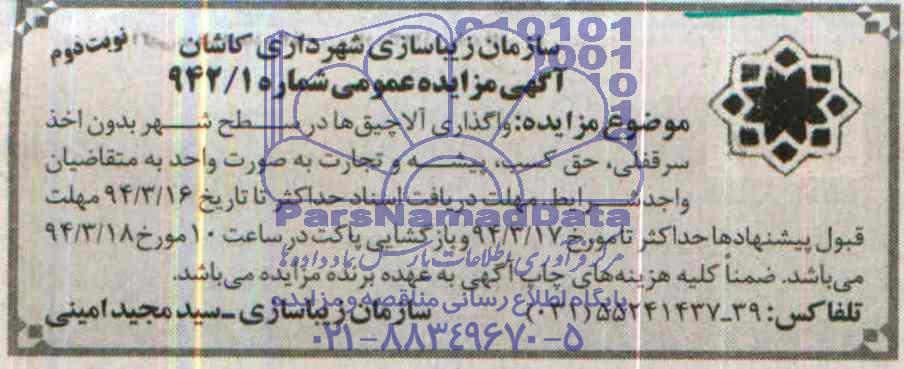 سازمان زیباسازی شهرداری کاشان
نوبت دوم
آگهی مزایده عمومی شماره ۹۴۲/۱
موضوع مزایده: واگذاری آلاچیق‌ها در سطح شهر بدون اخذ
سرقفلی، حق کسب، پیشه و تجارت به صورت واحد به متقاضیان
واجد شرایط. مهلت دریافت اسناد حداکثر تا تاریخ ۹۴/۳/۱۶ مهلت
قبول پیشنهادها حداکثر تا مورخ ۹۴/۳/۱۷ و بازگشایی پاکت در ساعت ۱۰ مورخ ۹۴/۳/۱۸
می‌باشد. ضمناً کلیه هزینه‌های چاپ آگهی به عهده برنده مزایده می‌باشد.
تلفاکس: ۳۹-۵۵۲۴۱۴۳۷ (۰۳۱)
سازمان زیباسازی - سید مجید امینی
ParsNamadData
مرکز فرآوری اطلاعات پارس نماد داده‌ها
پایگاه اطلاع رسانی مناقصه و مزایده
۰۲۱-۸۸۳۴۹۶۷۰-۵